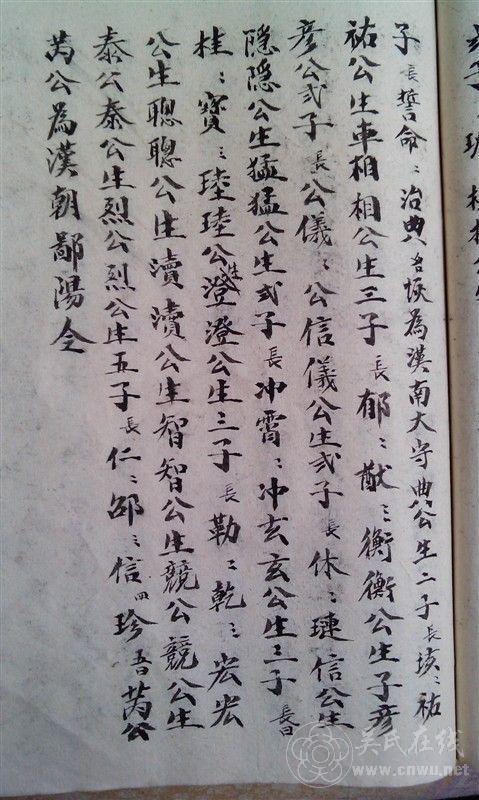 子長誓命二治典吾恢為漢南大守典公生二子長垓二祐
祐公生車相相公生三子長郁二猷三衡衡公生子彥
彥公弍子長公儀二公信儀公生弍子長休二璉信公生
隐隐公生猛猛公生弍子長冲霄二冲玄玄公生三子長曰
桂二寶三琏琏公生澄澄公生三子長勒二乾三宏宏
公生聰聰公生瀆瀆公生智智公生競公競公生
泰公泰公生烈公烈公生五子長仁二邵三信四珍吾芮公
芮公為漢朝鄱陽令
吴氏在线
www.cnwu.net